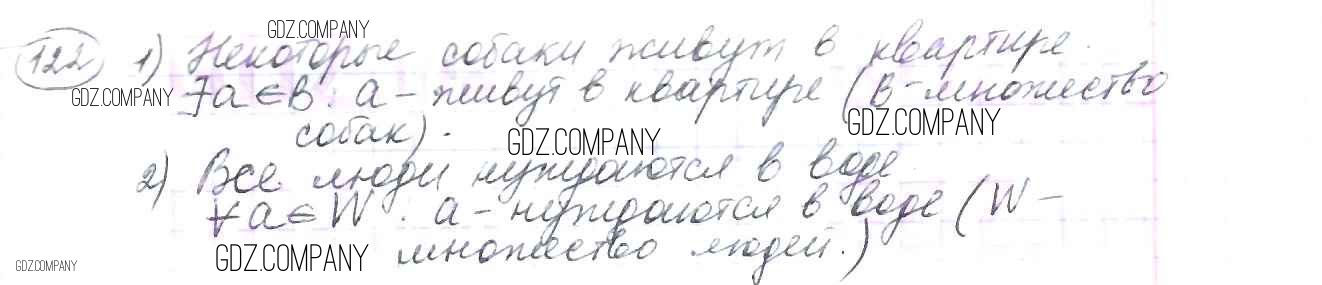 GDZ.COMPANY
122 1) Некоторые собаки живут в квартире.
GDZ.COMPANY ∃a∈B: a – живут в квартире (B – множество
собак). GDZ.COMPANY GDZ.COMPANY
2) Все люди нуждаются в воде
∀a∈W: a – нуждаются в воде (W –
GDZ.COMPANY GDZ.COMPANY множество людей.)